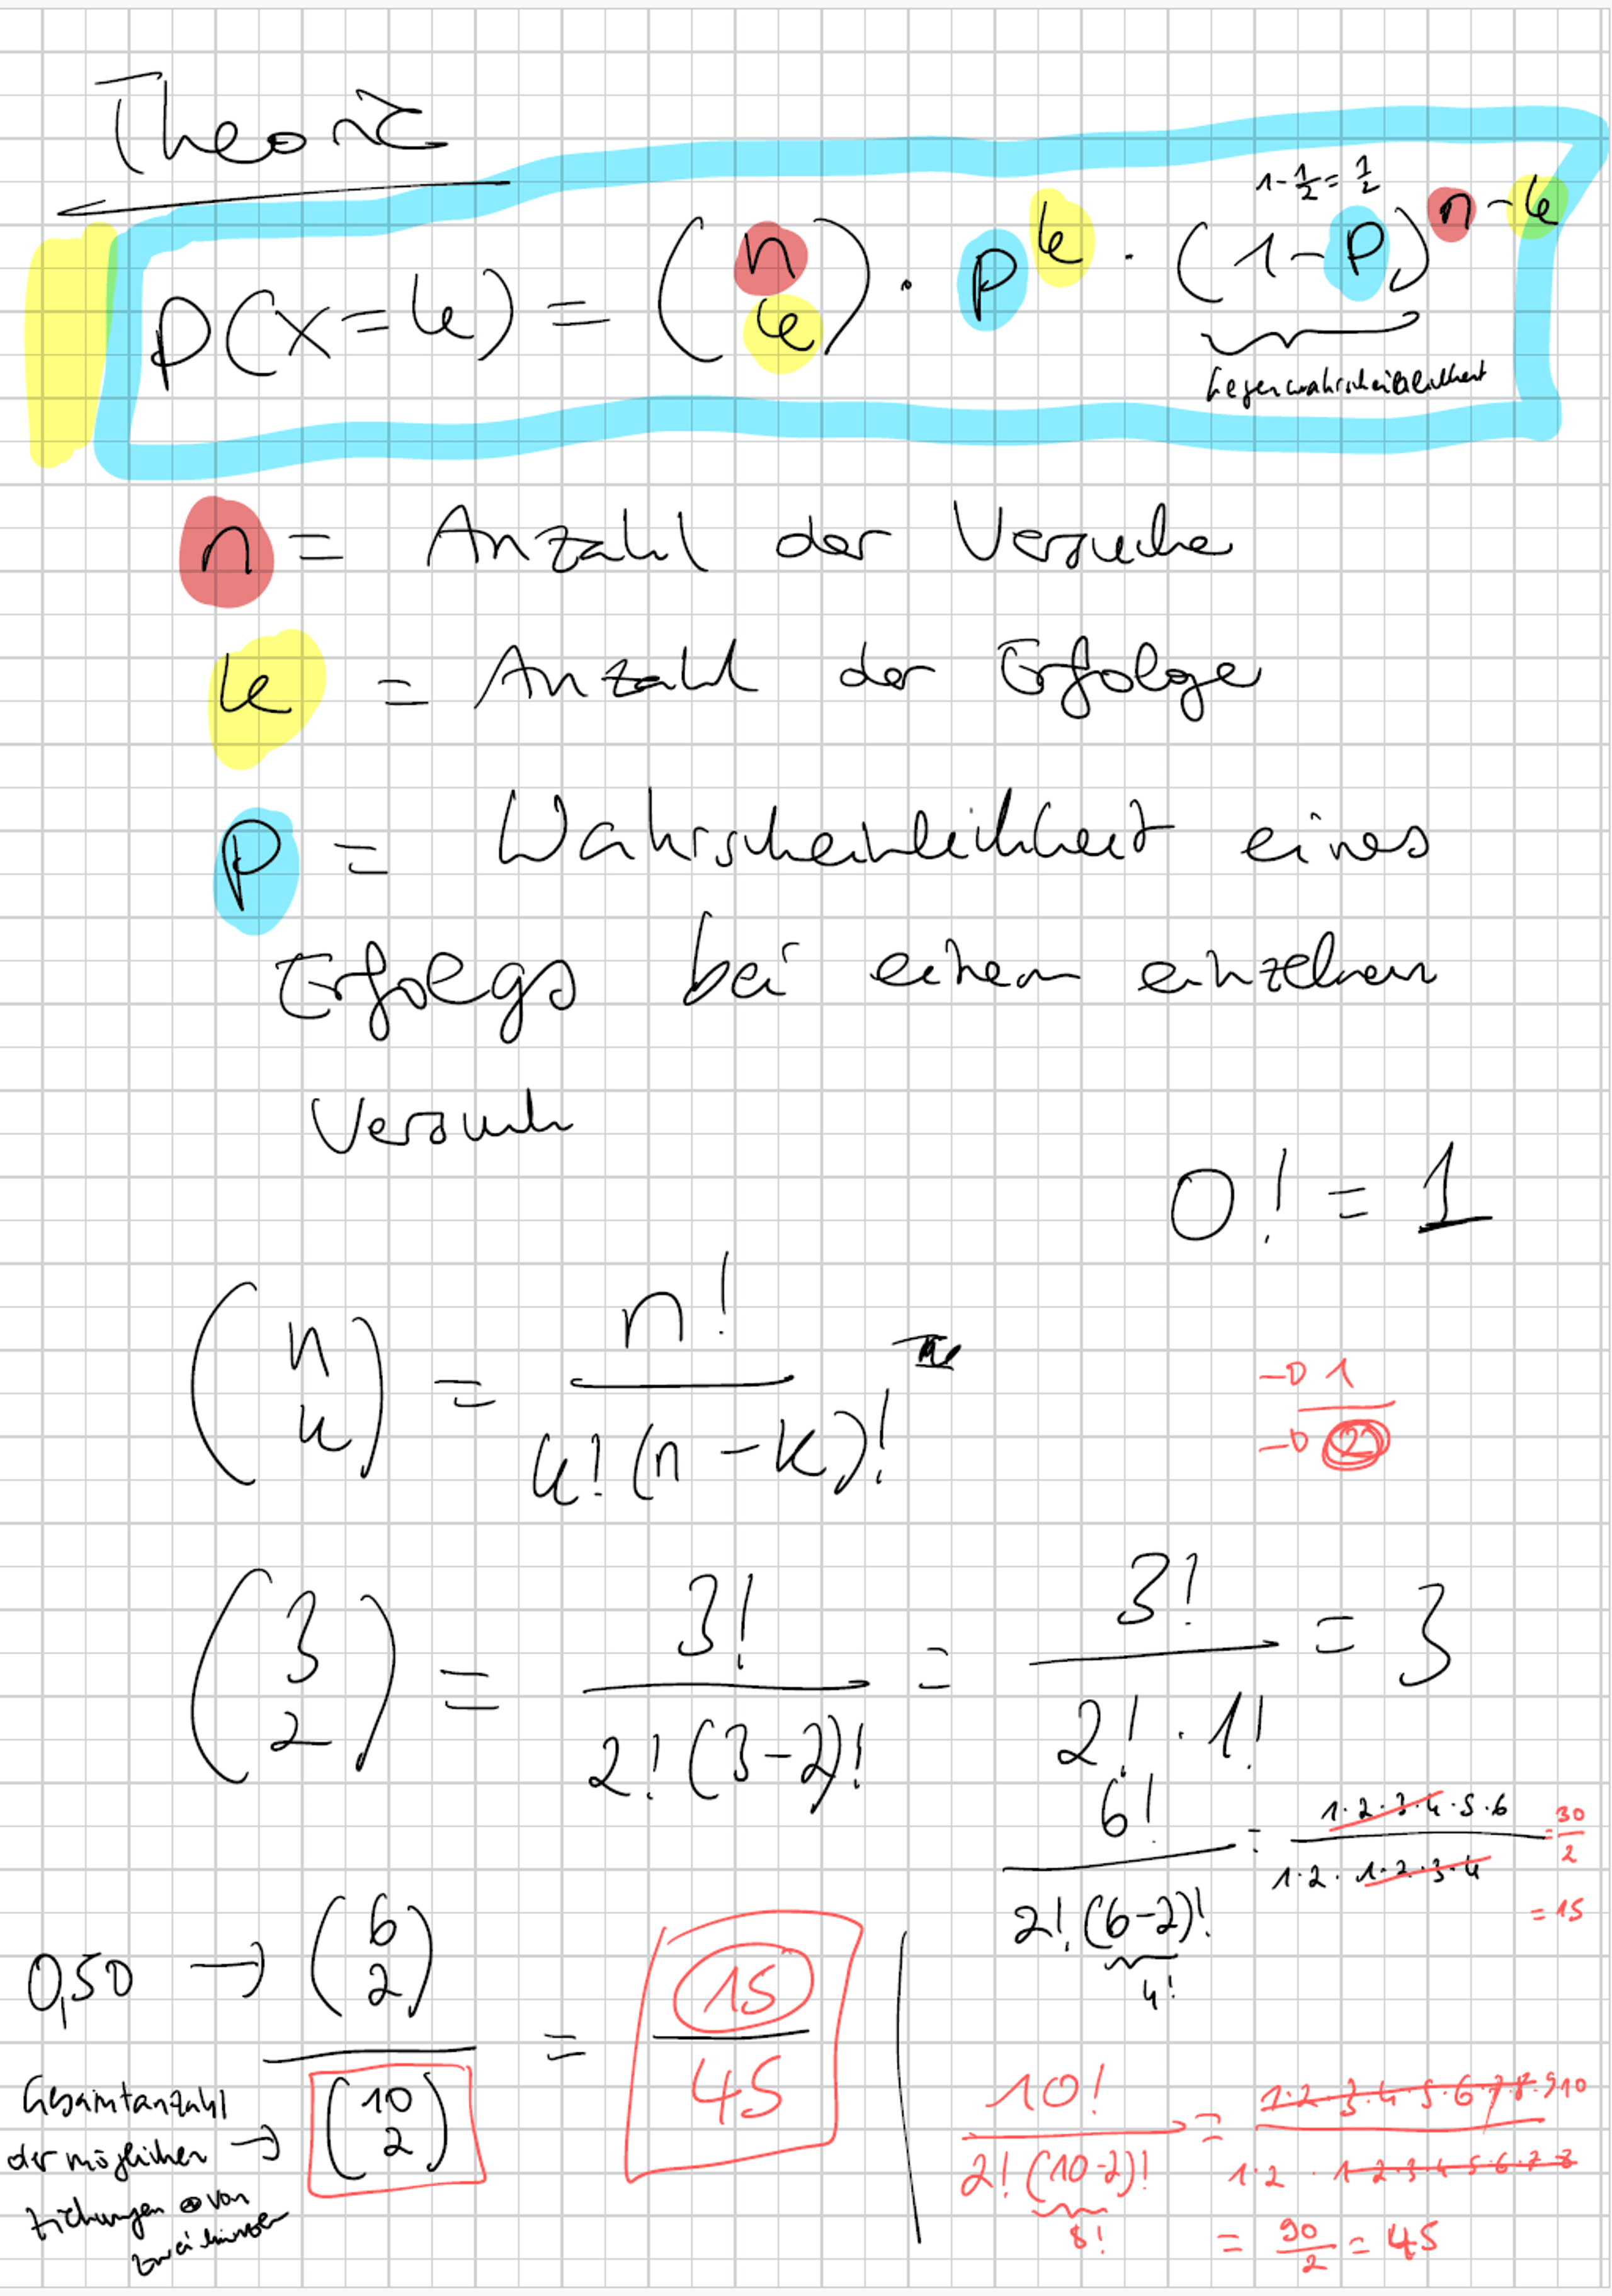 Theorie
1-1/2=1/2
P(x=k) = (n k) · p^k · (1-p)^n-k
Gegenwahrscheinlichkeit
n = Anzahl der Versuche
k = Anzahl der Erfolge
p = Wahrscheinlichkeit eines
Erfolgs bei einem einzelnen
Versuch
0! = 1
(n k) = n! / k!(n-k)!
→ 1
→ 2
(3 2) = 3! / 2!(3-2)! = 3! / 2!·1! = 3
6! / 2!(6-2)! = 1·2·3·4·5·6 / 1·2·1·2·3·4 = 30/2
4!
= 15
0,50 → (6 2) / (10 2) = 15/45
Gesamtanzahl
der möglichen →
Ziehungen von
zwei Münzen
10! / 2!(10-2)! = 1·2·3·4·5·6·7·8·9 10 / 1·2·1·2·3·4·5·6·7·8
8!
= 90/2 = 45